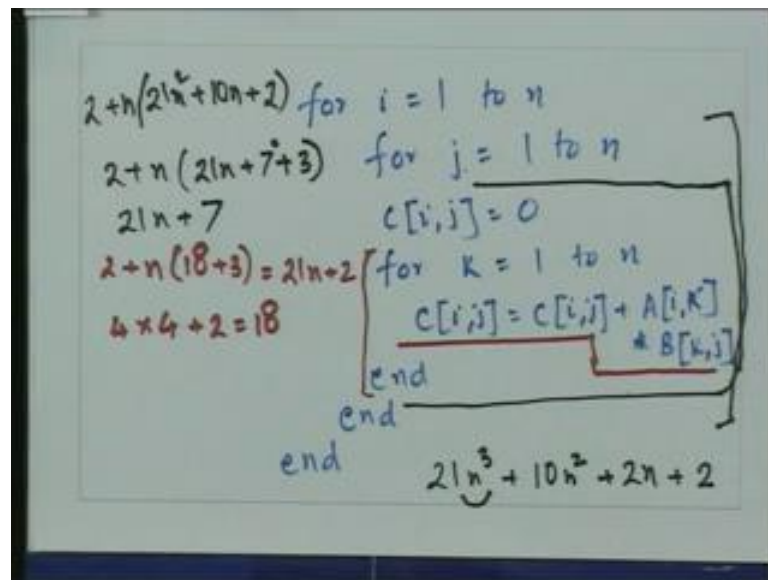 2+n(21n²+10n+2) for i = 1 to n
2+n(21n+7+3) for j = 1 to n
21n+7 C[i,j] = 0
2+n(18+3) = 21n+2 for K = 1 to n
4×4+2 = 18 C[i,j] = C[i,j] + A[i,K]
* B[K,j]
end
end
end
21n³ + 10n² + 2n + 2